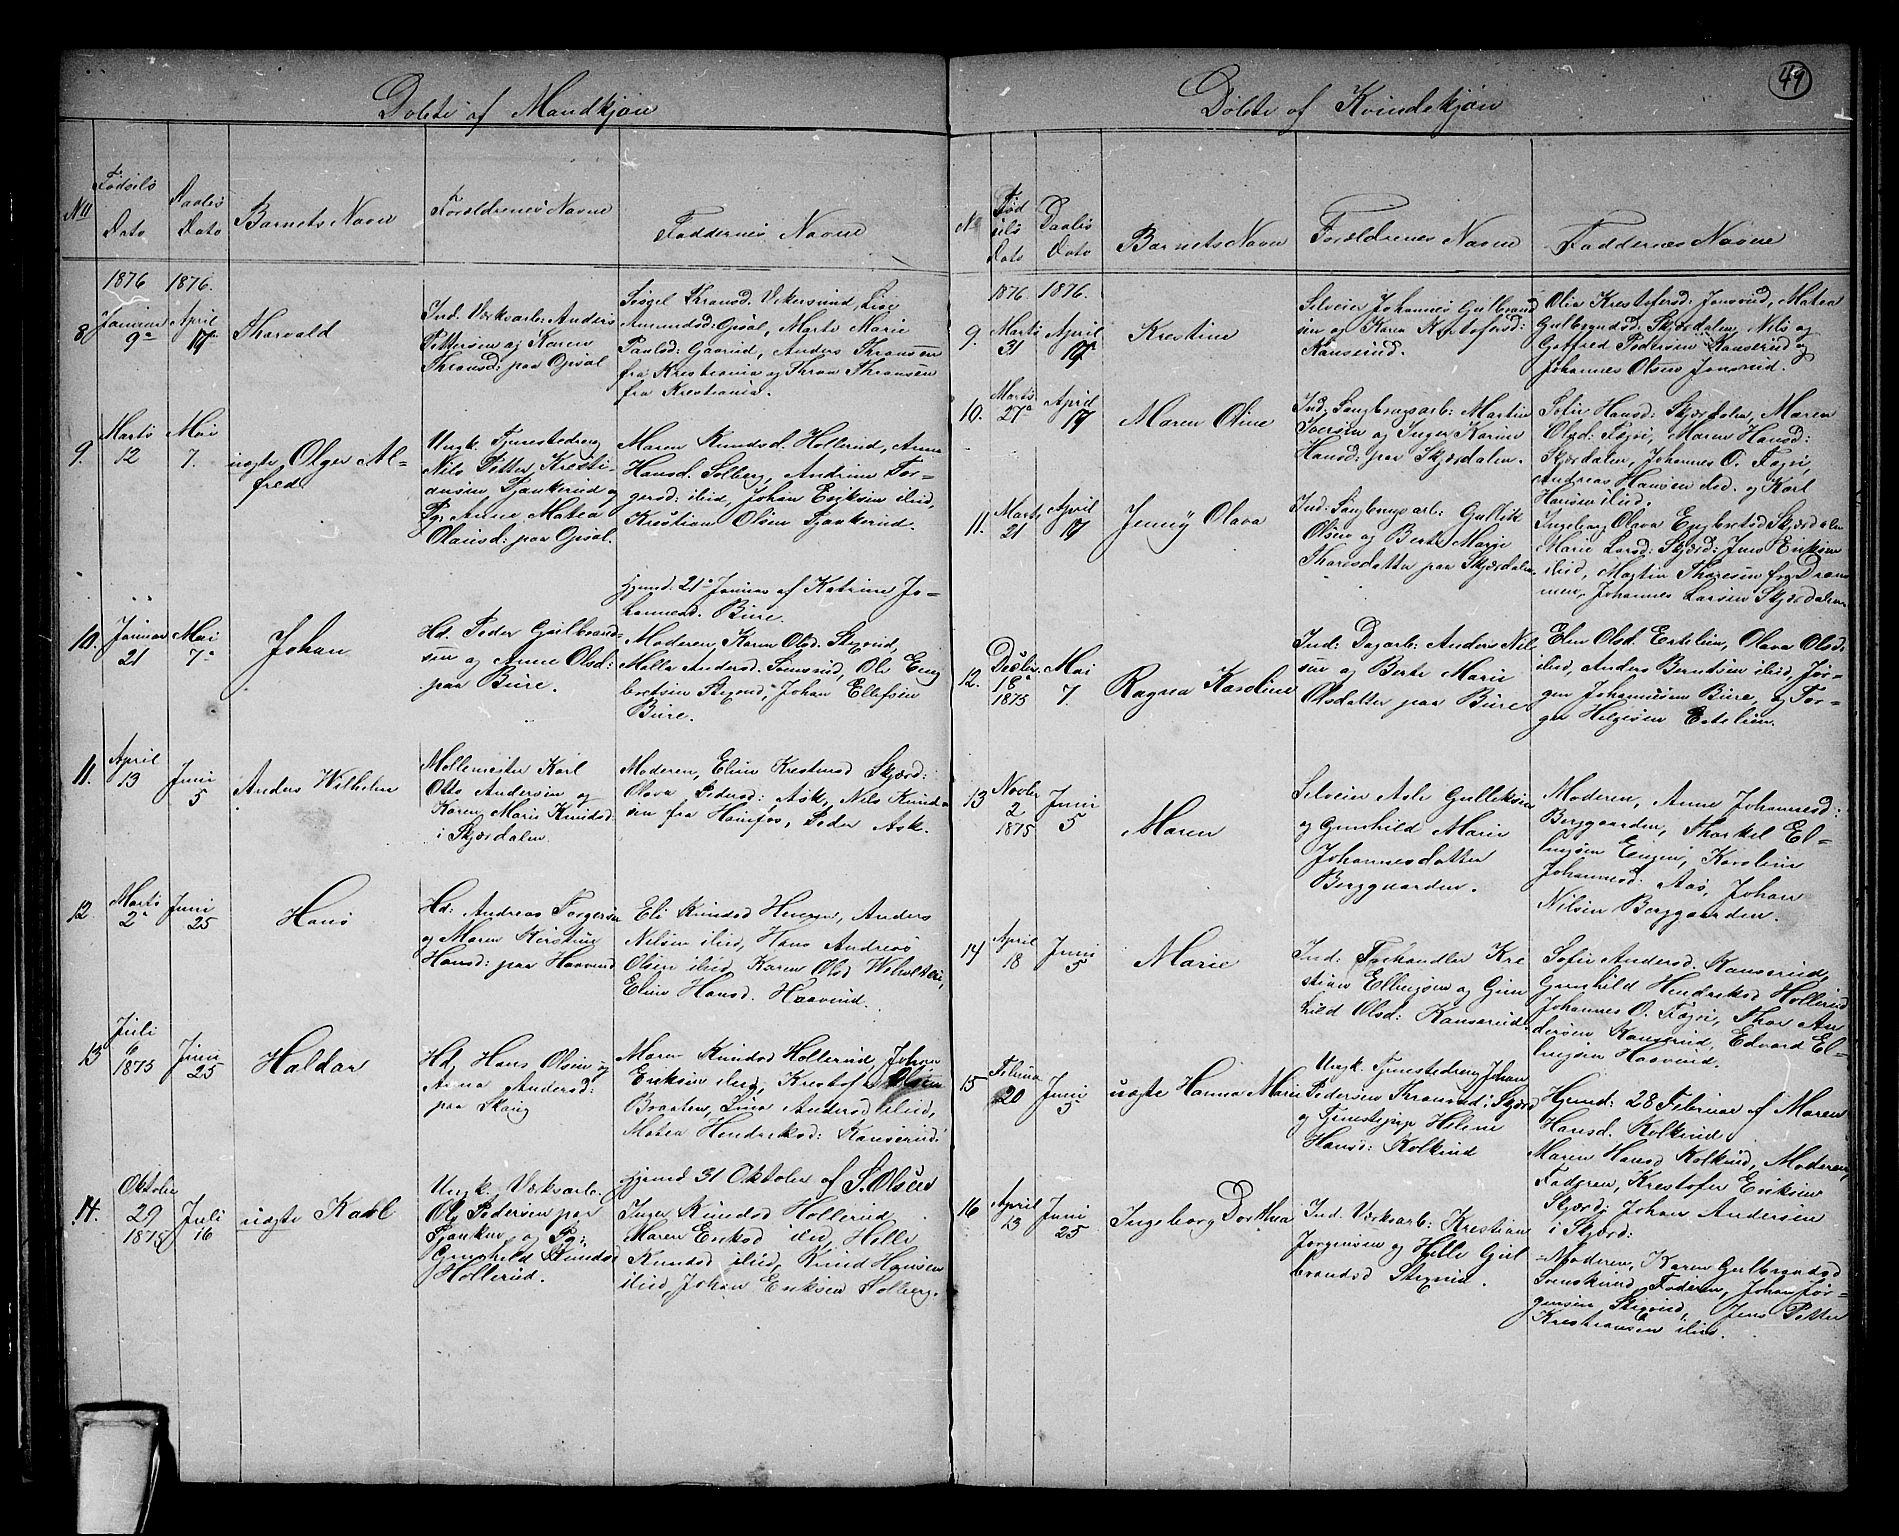 49
Døbte af Mandkjøn
No
Fødsels Dato
Daabs Dato
Barnets Navn
Forældrenes Navne
Faddernes Navne
1876 1876.
8. Januar 9de
April 17
Tharvald
Ind. Værksarb. Anders
Pettersen og Karen
Thransd: paa Opsal
Thransd. Vikersund,
Amundsd: Opsal, Marte Marie
Paulsd: Gaarud, Anders Thransen
fra Kristiania og Thran Thransen
fra Krestiania.
9. Marts 12
Mai 7.
uægte Olger Al-
fred
Ungk. Tjenestedreng
Nils Petter Kresti-
ansen Tjankerud og
Pg: Anne Matea
Olausd: paa Opsal.
Maren Knudsd. Hollerud, Anne
Hansd. Solberg, Andrine Tor-
gersd: ibid, Johan Eriksen ibid,
Kristian Olsen Tjankerud.
10. Januar 21
Mai 7de
Johan
Hd. Peder Gulbrand-
sen og Anne Olsd:
paa Bure.
Hjemd. 21de Januar af Katrine Jo-
hannesd. Bure.
Moderen, Karen Olsd. Stixrud,
Malla Andersd. Ole Eng
bretsen Stixrud, Johan Ellefsen
Bure.
11. April 13
Juni 5
Anders Wilhelm
Møllemester Karl
Otto Andersen og
Karen Marie Knudsd
i Skjærdalen.
Moderen, Eline Krestensd Skjærd:
Olava Pedersd: Ask, Nils Knud
sen fra Hønefos, Peder Ask.
12 Marts 2de
Juni 25
Hans
Hd: Andreas Torgersen
og Maren Kirstine
Hansd: paa Haavrud
Eli Knudsd Hensen, Anders
Nilsen ibid, Hans Andreas
Olsen ibid, Karen Olsd
Eline Hansd. Haavrud.
13 Juli 6 1875
Juni 25
Haldor
Hd. Hans Olsen og
Anna Andersd:
paa Skaug
Maren Knudsd Hollerud, Johan
Eriksen ibid, Krestofer Olsen
Braaten, Lina Andersd ibid,
Matea Hendriksd: Kanserud.
14. Oktober 29 1875
Juli 16
uægte Karl
Ungk. Værksarb.
Ole Pedersen paa
Tjanker og Pg:
Gunhild Knudsd
Hollerud.
Hjemd 31 Oktober af S. Olsen
Inger Knudsd Hollerud
Maren Eriksd ibid, Helle
Knudsd ibid, Knud Hansen
ibid, Johan Eriksen Solberg.
Døbte af Kvindekjøn
No
Fød sels Dato
Daabs Dato
Barnets Navn
Forældrenes Navne
Faddernes Navne
1876. 1876.
9. Marts 31
April 17
Krestine
Selveier Johannes Gulbrand
sen og Karen Krestofersd:
Kanserud.
Olia Krestofersd: Jonsrud, Matea
Gulbrandsd: Skjærdalen, Nils og
Gotfred Pedersen Kanserud og
Johannes Olsen Jonsrud.
10. Marts 27de
April 17
Maren Oline
Ind. Saugbrugsarb: Martin
Iversen og Inger Karine
Hansd: paa Skjærdalen.
Sofie Hansd: Skjærdalen, Maren
Olsd: Fagri, Maren Hansd:
Skjærdalen, Johannes O. Fagri,
Andreas Hansen ibid. og Karl
Hansen ibid.
11. Marts 21
April 17
Jenny Olava
Ind. Saugbrugsarb: Gullik
Olsen og Berte Marie
Tharisdatter paa Skjærdalen
Ingeborg Olava Engbretsd Skjærdalen
Marie Larsd: Skjærd: Jens Eriksen
ibid, Martin Tharesen fra Dram
men, Johannes Larsen Skjærdalen
12. Desbr. 18de 1875
Mai 7.
Ragna Karoline
Ind: Dagarb: Anders Nil
sen og Berte Marie
Olsdatter paa Bure
Elen Olsd. Ertelien, Olava Olsd
ibid, Anders Berntsen ibid, Jør-
gen Johannesen Bure, og Tor-
ger Helgesen Ertelien.
13 Novbr 2 1875
Juni 5
Maren
Selveier Asle Gulliksen
og Gunhild Marie
Johannesdatter
Berggaarden.
Moderen, Anne Johannesd:
Berggaarden, Tharkel El-
lingsen Karoline
Johannesd. Aas, Johan
Nilsen Berggaarden.
14 April 18
Juni 5
Marie
Ind: Kre
stian Ellingsen og Gun
hild Olsd: Kanserud
Sofie Andersd. Kanserud,
Gunhild Hendriksd Hollerud
Johannes O. Fagri, Thor An
dersen Kanserud, Edvard El-
lingsen Haavrud.
15 Februar 20
Juni 5
uægte Hanna Marie
Ungk. Tjenestedreng Johan
Pedersen Thransrud i Skjærd
og Tjenestepige Helene
Hansd: Kolkind
Hjemd: 28 Februar af Maren
Hansd. Kolkind.
Maren Hansd Kolkind, Moderen,
Faderen, Krestofer Eriksen
Skjærd: Johan Andersen
i Skjærd:
16 April 13
Juni 25
Ingeborg Dorthea
Ind. Værksarb: Krestian
Jørgensen og Helle Gul
brandsd Stixrud.
Moderen, Karen Gulbrandsd
Svenskerud, Faderen, Johan Jør-
gensen Stixrud, Jens Petter
Krestiansen ibid.